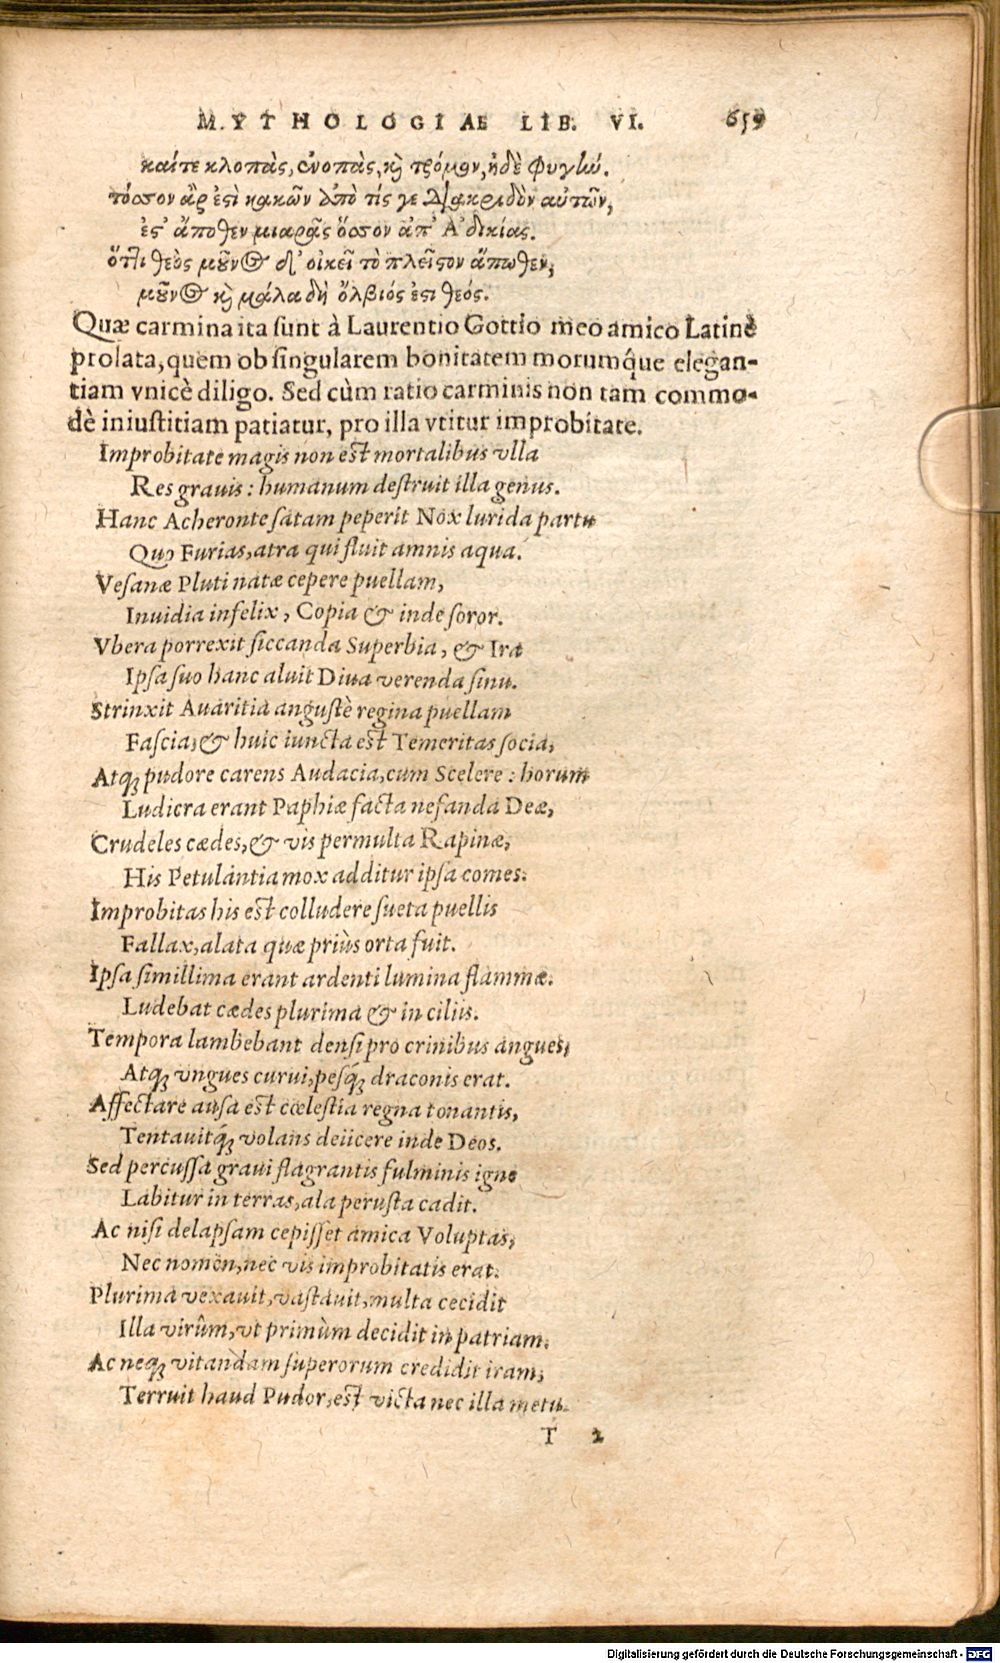 MYTHOLOGIAE LIB. VI. 659
καίτε κλοπὰς, ἐνοπὰς, καὶ τρόμον, ἠδὲ φυγὴν.
τόσσον ἂρ ἐστὶ κακῶν ἀπὸ τίς γε διακριδὸν αὐτῶν,
ἐς ἄποθεν μιαρᾶς ὅσσον ἀπ' Ἀδικίας.
ὅττι θεὸς μοῦνος δ' οἰκεῖ τὸ πλεῖστον ἄπωθεν,
μοῦνος καὶ μάλα δὴ ὄλβιός ἐστι θεός.
Quæ carmina ita ſunt à Laurentio Gottio meo amico Latinè
prolata, quem ob ſingularem bonitatem morumq́ue elegan-
tiam vnicè diligo. Sed cùm ratio carminis non tam commo-
dè iniuſtitiam patiatur, pro illa vtitur improbitate.
Improbitate magis non eſt mortalibus vlla
Res grauis: humanum deſtruit illa genus.
Hanc Acheronte ſatam peperit Nox lurida partu
Quo Furias, atra qui fluit amnis aqua.
Veſanæ Pluti natæ cepere puellam,
Inuidia infelix, Copia & inde ſoror.
Vbera porrexit ſiccanda Superbia, & Ira
Ipſa ſuo hanc aluit Diua verenda ſinu.
Strinxit Auaritia anguſtè regina puellam
Faſcia, & huic iuncta eſt Temeritas ſocia,
Atq; pudore carens Audacia, cum Scelere: horum
Ludicra erant Paphiæ facta nefanda Deæ,
Crudeles cædes, & vis permulta Rapinæ,
His Petulantia mox additur ipſa comes.
Improbitas his eſt colludere ſueta puellis
Fallax, alata quæ priùs orta fuit.
Ipſa ſimillima erant ardenti lumina flammæ.
Ludebat cædes plurima & in ciliis.
Tempora lambebant denſi pro crinibus angues,
Atq; vngues curui, peſq́; draconis erat.
Affectare auſa eſt cœleſtia regna tonantis,
Tentauitq́; volans deiicere inde Deos.
Sed percuſſa graui flagrantis fulminis igne
Labitur in terras, ala peruſta cadit.
Ac niſi delapſam cepiſſet amica Voluptas,
Nec nomen, nec vis improbitatis erat.
Plurima vexauit, vaſtauit, multa cecidit
Illa virûm, vt primùm decidit in patriam.
Ac neq; vitandam ſuperorum credidit iram,
Terruit haud Pudor, eſt victa nec illa metu.
T 2
Digitalisierung gefördert durch die Deutsche Forschungsgemeinschaft - DFG